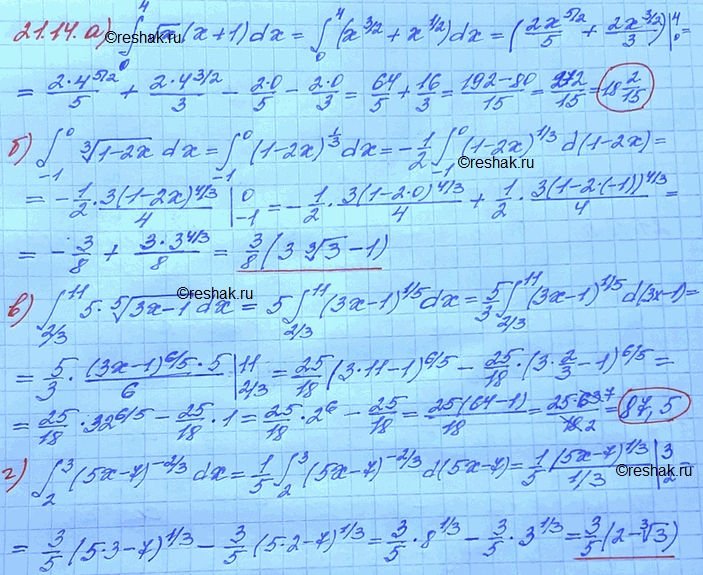 21.14. а) ∫₀⁴ √x (x+1) dx = ∫₀⁴ (x^{3/2} + x^{1/2}) dx = (2x^{5/2}/5 + 2x^{3/2}/3)|₀⁴ =
= 2·4^{5/2}/5 + 2·4^{3/2}/3 - 2·0/5 - 2·0/3 = 64/5 + 16/3 = (192-80)/15 = 272/15 = 18 2/15
©reshak.ru
б) ∫₋₁⁰ ∛(1-2x) dx = ∫₋₁⁰ (1-2x)^{1/3} dx = -1/2 ∫₋₁⁰ (1-2x)^{1/3} d(1-2x) =
©reshak.ru
= -1/2 · 3(1-2x)^{4/3}/4 |₋₁⁰ = -1/2 · 3(1-2·0)^{4/3}/4 + 1/2 · 3(1-2·(-1))^{4/3}/4 =
= -3/8 + 3·3^{4/3}/8 = 3/8 (3∛3 - 1)
©reshak.ru
в) ∫_{2/3}^{11} 5·⁵√(3x-1) dx = 5 ∫_{2/3}^{11} (3x-1)^{1/5} dx = 5/3 ∫_{2/3}^{11} (3x-1)^{1/5} d(3x-1) =
= 5/3 · (3x-1)^{6/5}·5/6 |_{2/3}^{11} = 25/18 (3·11-1)^{6/5} - 25/18 · (3·2/3-1)^{6/5} =
= 25/18 · 32^{6/5} - 25/18 · 1 = 25/18 · 2⁶ - 25/18 = 25(64-1)/18 = 25·63 7/18 2 = 87,5
г) ∫₂³ (5x-7)^{-2/3} dx = 1/5 ∫₂³ (5x-7)^{-2/3} d(5x-7) = 1/5 (5x-7)^{1/3}/(1/3) |₂³ =
©reshak.ru
= 3/5 (5·3-7)^{1/3} - 3/5 (5·2-7)^{1/3} = 3/5 · 8^{1/3} - 3/5 · 3^{1/3} = 3/5 (2-∛3)